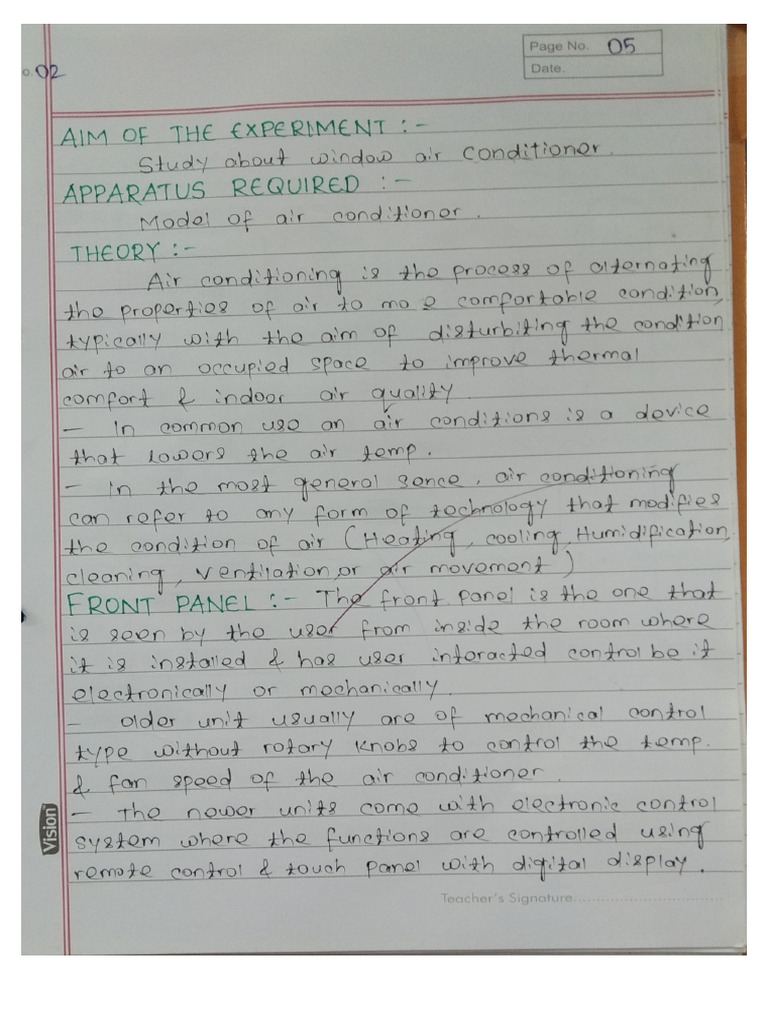 Page No. 05
o. 02
Date.
AIM OF THE EXPERIMENT :-
Study about window air conditioner.
APPARATUS REQUIRED :-
Model of air conditioner.
THEORY :-
Air conditioning is the process of alternating
the properties of air to more comfortable condition,
typically with the aim of disturbiting the condition
air to an occupied space to improve thermal
comfort & indoor air quality.
- In common use an air conditions is a device
that lowers the air temp.
- In the most general sence, air conditioning
can refer to any form of technology that modifies
the condition of air (Heating, cooling, Humidification,
cleaning, ventilation, or air movement)
FRONT PANEL :- The front panel is the one that
is seen by the user from inside the room where
it is installed & has user interacted control be it
electronically or mechanically.
- Older unit usually are of mechanical control
type without rotary knobs to control the temp.
& fan speed of the air conditioner.
- The newer units come with electronic control
system where the functions are controlled using
remote control & touch panel with digital display.
Vision
Teacher's Signature